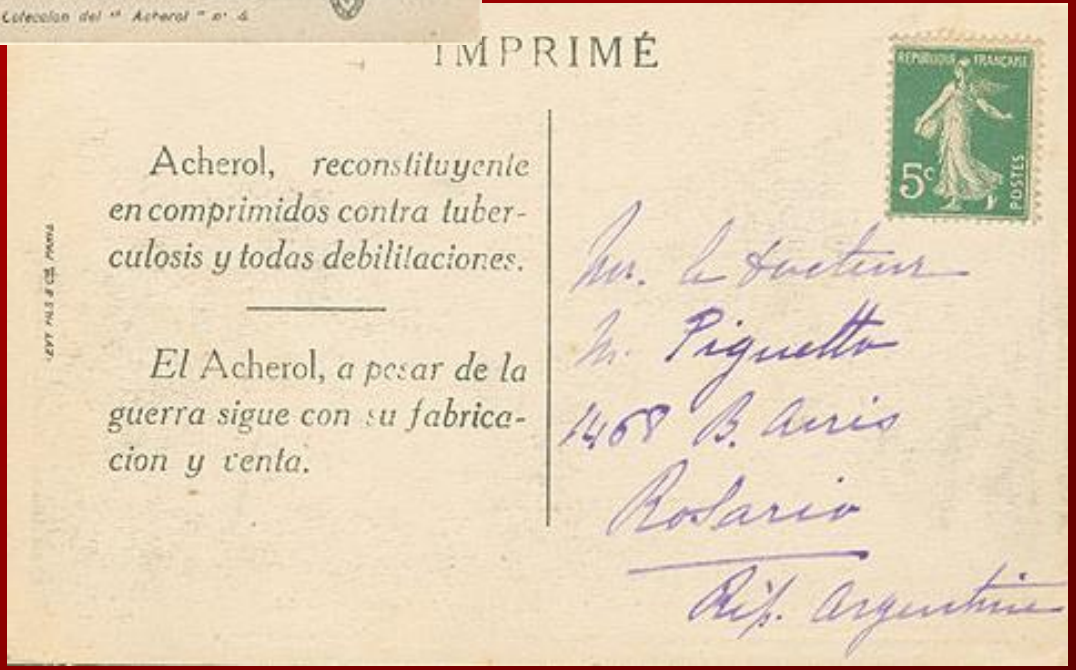 Coleccion del " Acherol " nº 4
IMPRIMÉ
REPUBLIQUE FRANÇAISE
5c
POSTES
Acherol, reconstituyente
en comprimidos contra tuber-
culosis y todas debilitaciones.
El Acherol, a pesar de la
guerra sigue con su fabrica-
cion y venta.
LEVY FILS & Cie PARIS
Mr. le docteur
M. Piguetto
1468 B. Aires
Rosario
Rép. Argentine